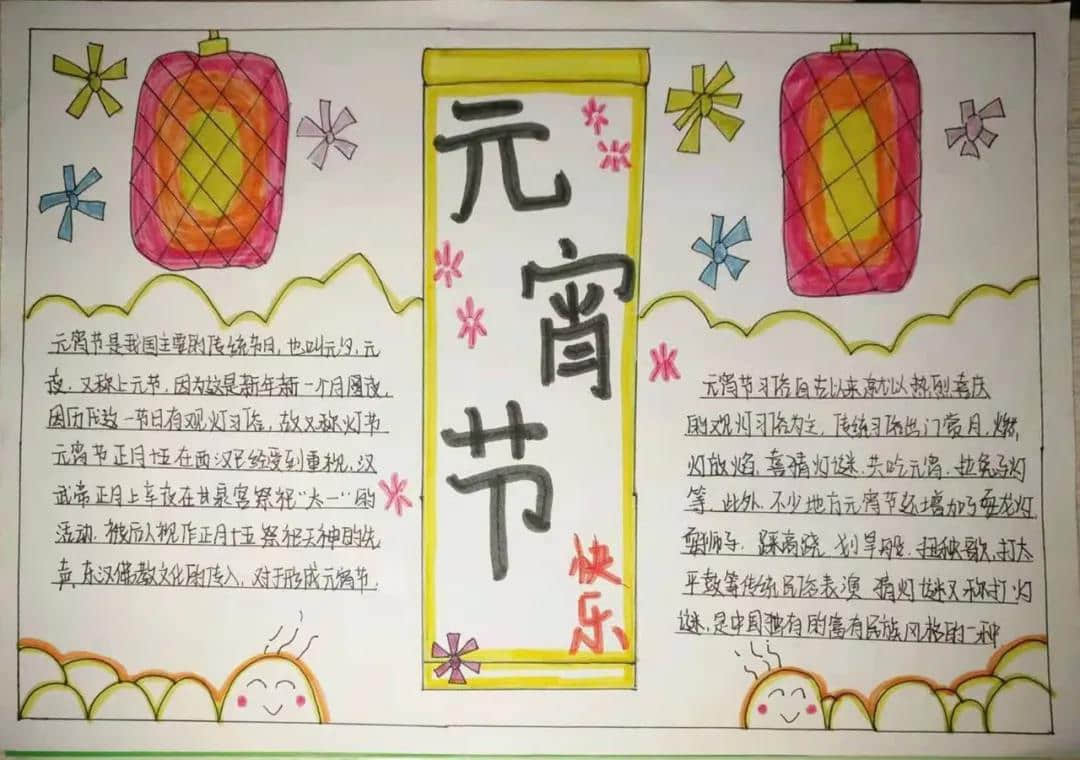 元宵节
快乐
元宵节是我国主要的传统节日,也叫元夕、元
夜,又称上元节,因为这是新年新一个月圆夜
因历代这一节日有观灯习俗,故又称灯节
元宵节正月十五在西汉已经受到重视,汉
武帝正月上辛夜在甘泉宫祭祀“太一”的
活动,被后人视作正月十五祭祀天神的先
声,东汉佛教文化的传入,对于形成元宵节.
元宵节习俗自古以来就以热烈喜庆
的观灯习俗为主,传统习俗出门赏月,燃
灯放焰,喜猜灯谜,共吃元宵,拉兔子灯
等,此外,不少地方元宵节还增加了耍龙灯,
耍狮子,踩高跷,划旱船,扭秧歌,打太
平鼓等传统民俗表演 猜灯谜又称打灯
谜,是中国独有的富有民族风格的一种